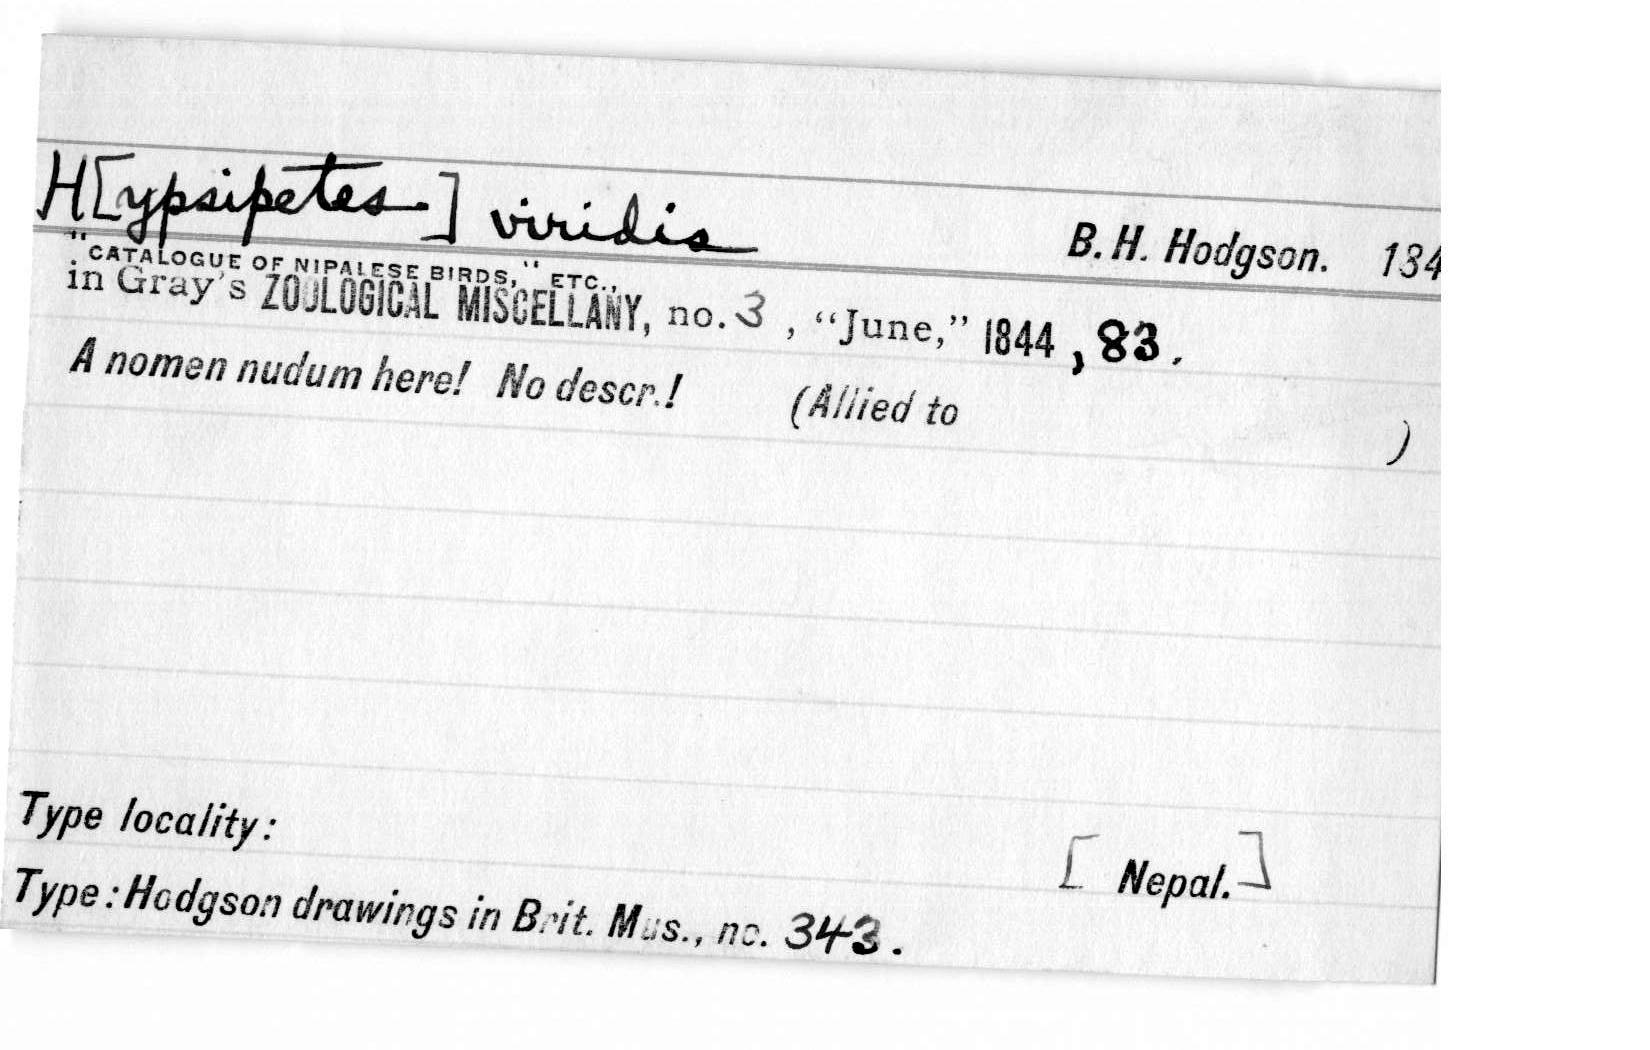 H[ypsipetes.] viridis B. H. Hodgson. 184
"CATALOGUE OF NIPALESE BIRDS," ETC.,
in Gray's ZOOLOGICAL MISCELLANY, no. 3, "June," 1844, 83.
A nomen nudum here! No descr.! (Allied to )
Type locality: [Nepal.]
Type: Hodgson drawings in Brit. Mus., no. 343.